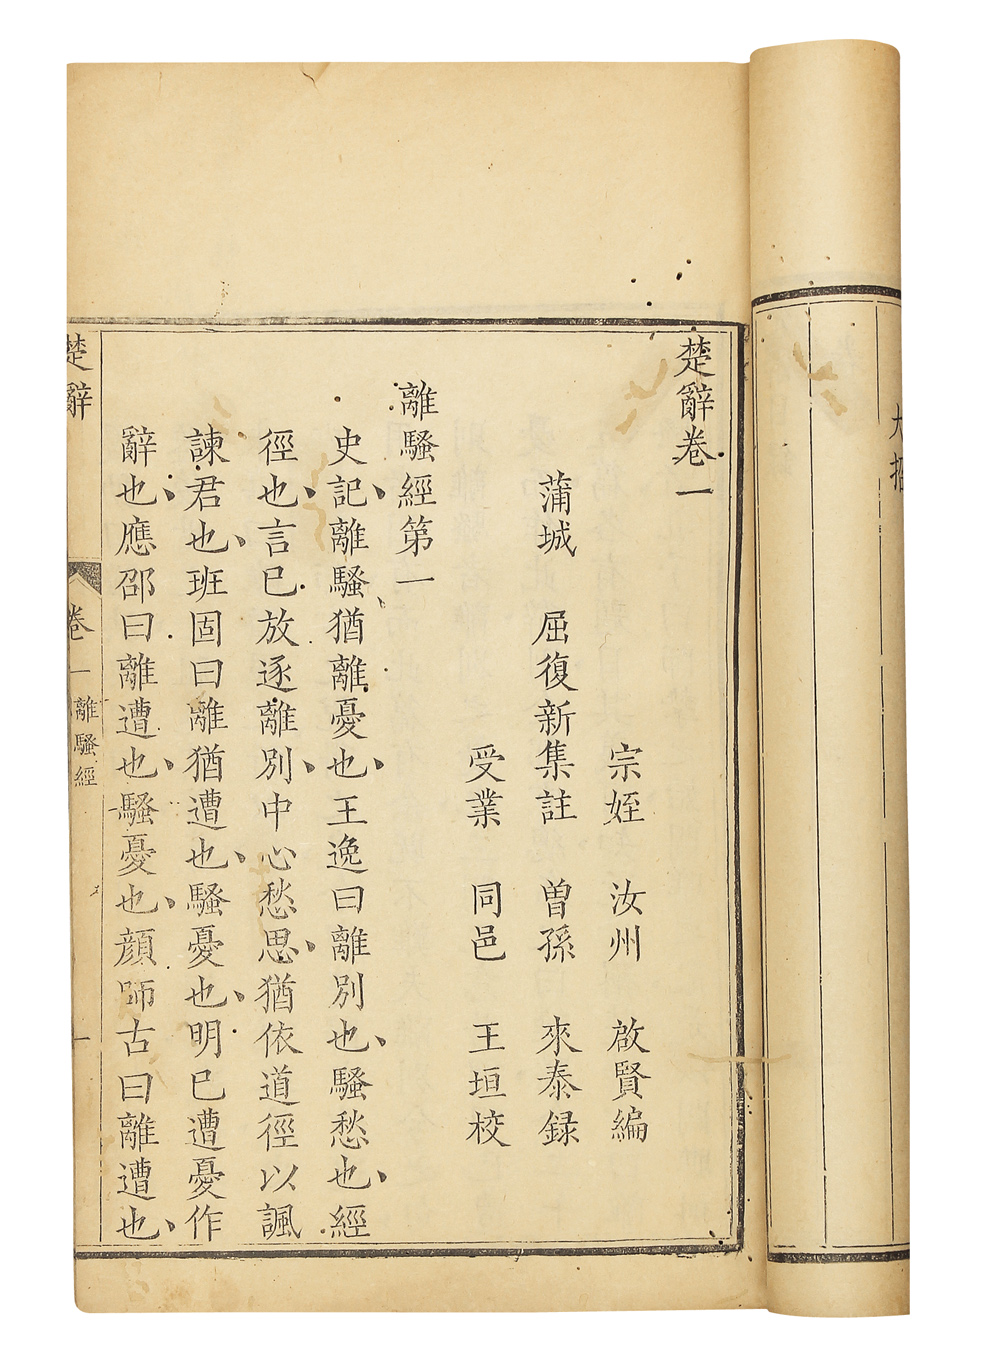 大招
楚辭卷一
宗姪 汝州 啟賢編
蒲城 屈復新集註 曾孫 來泰録
受業 同邑 王垣校
離騷經第一
史記離騷猶離憂也王逸曰離別也騷愁也經
徑也言已放逐離別中心愁思猶依道徑以諷
諫君也班固曰離猶遭也騷憂也明已遭憂作
辭也應邵曰離遭也騷憂也顔師古曰離遭也
楚辭 卷一 離騷經 一